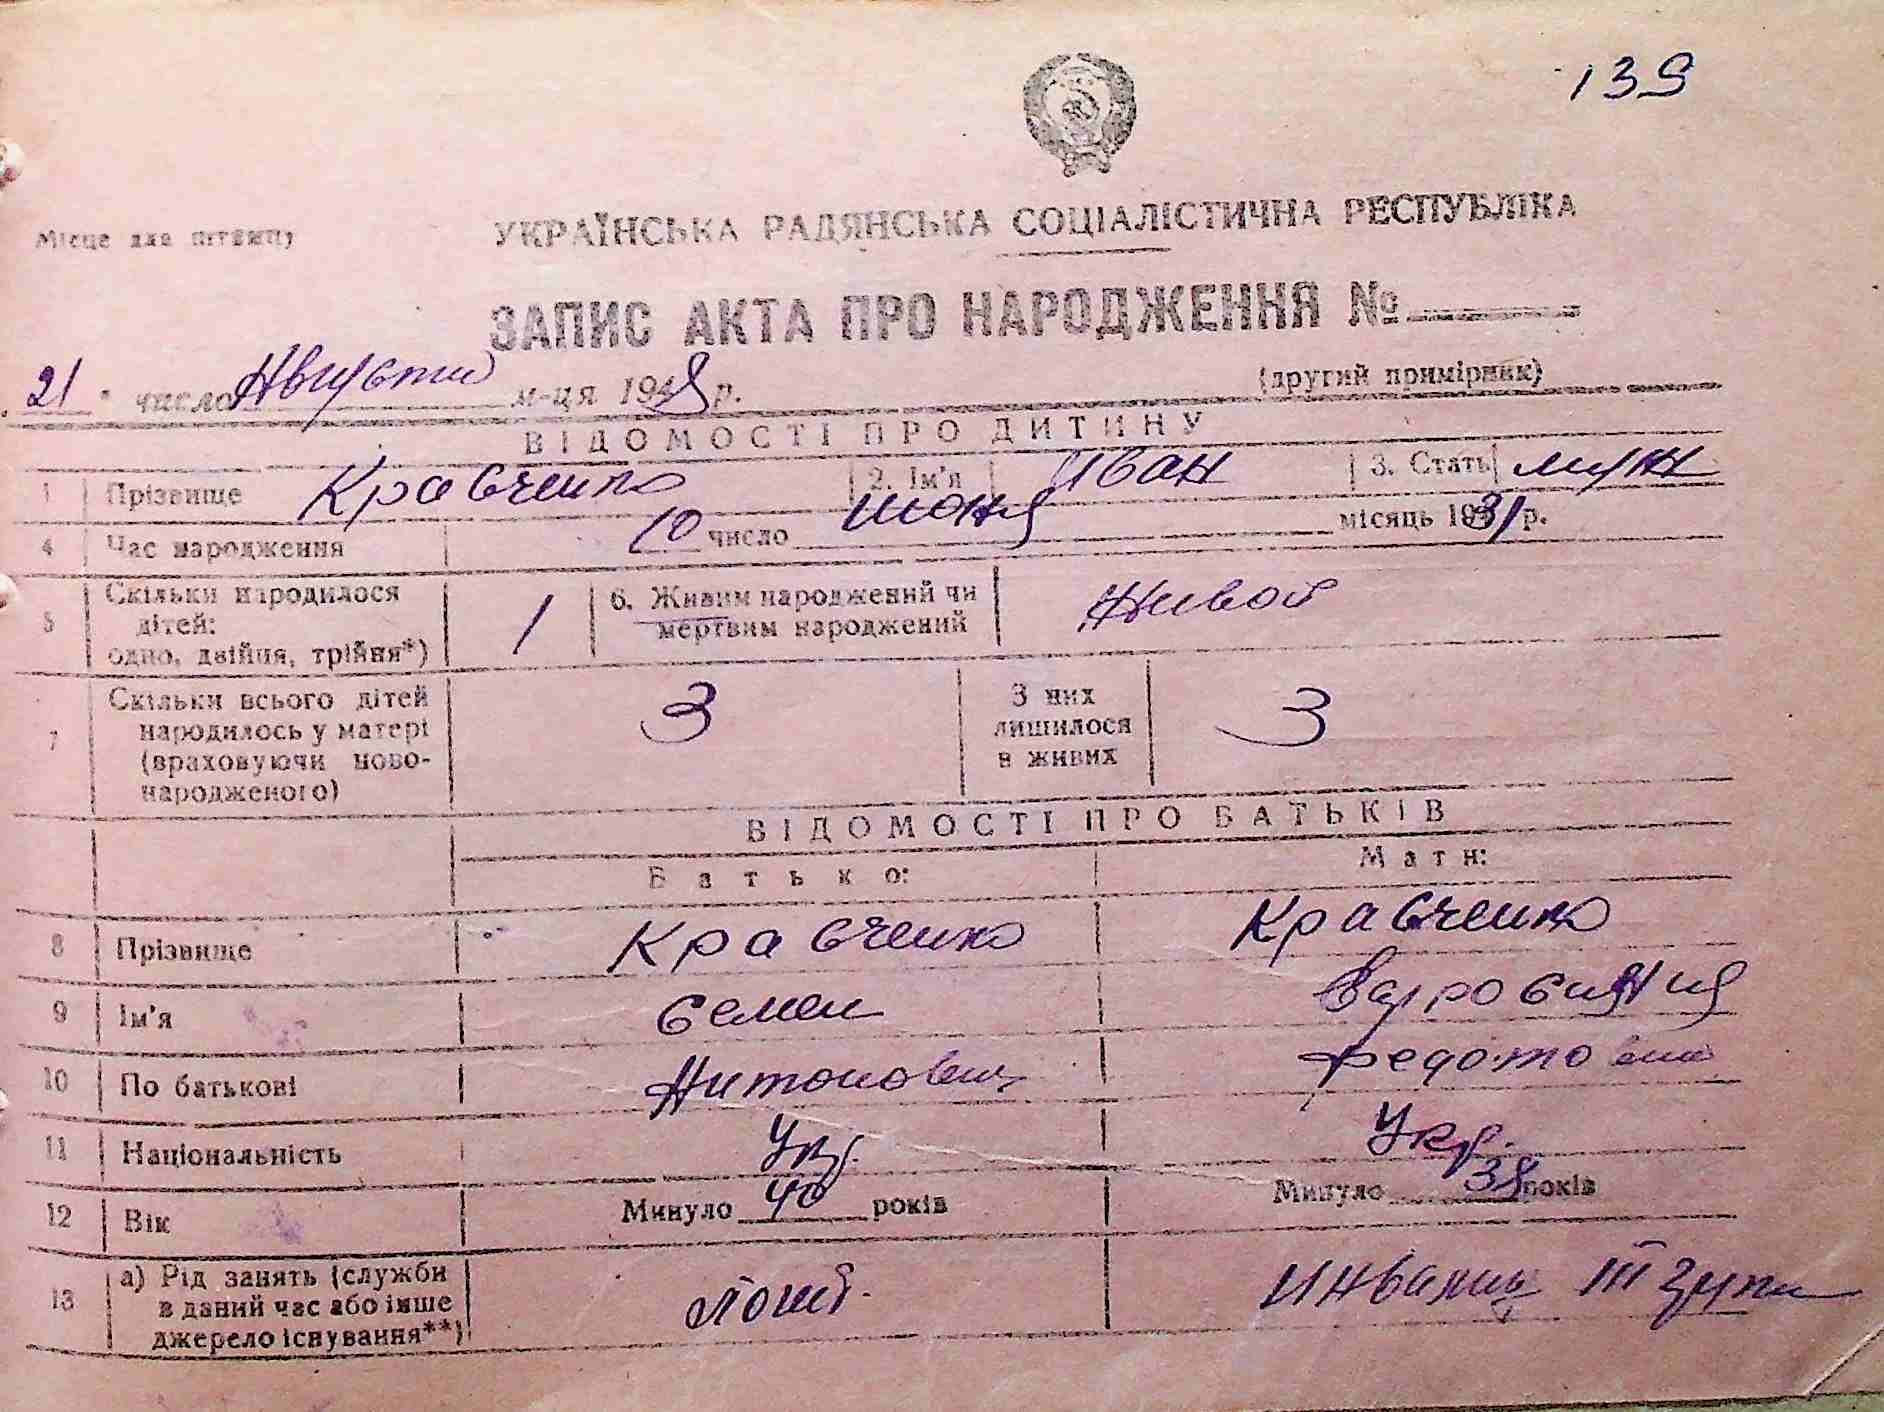 139
Місце для штампу
УКРАЇНСЬКА РАДЯНСЬКА СОЦІАЛІСТИЧНА РЕСПУБЛІКА
ЗАПИС АКТА ПРО НАРОДЖЕННЯ №
(другий примірник)
21 " число Августа м-ця 1948 р.
ВІДОМОСТІ ПРО ДИТИНУ
1 Прізвище Кравченко 2. Ім'я Иван 3. Стать муж
4 Час народження 10 число июня місяць 1931 р.
5 Скільки народилося дітей: одно, двійня, трійня*) 1 6. Живим народжений чи мертвим народжений Живой
7 Скільки всього дітей народилось у матері (враховуючи новонародженого) 3 З них лишилося в живих 3
ВІДОМОСТІ ПРО БАТЬКІВ
Батько: Мати:
8 Прізвище Кравченко Кравченко
9 Ім'я Семен
10 По батькові Антонович Федотовна
11 Національність Укр. Укр.
12 Вік Минуло 40 років Минуло 38 років
13 а) Рід занять (служби в даний час або інше джерело існування**) Инвалид III групи